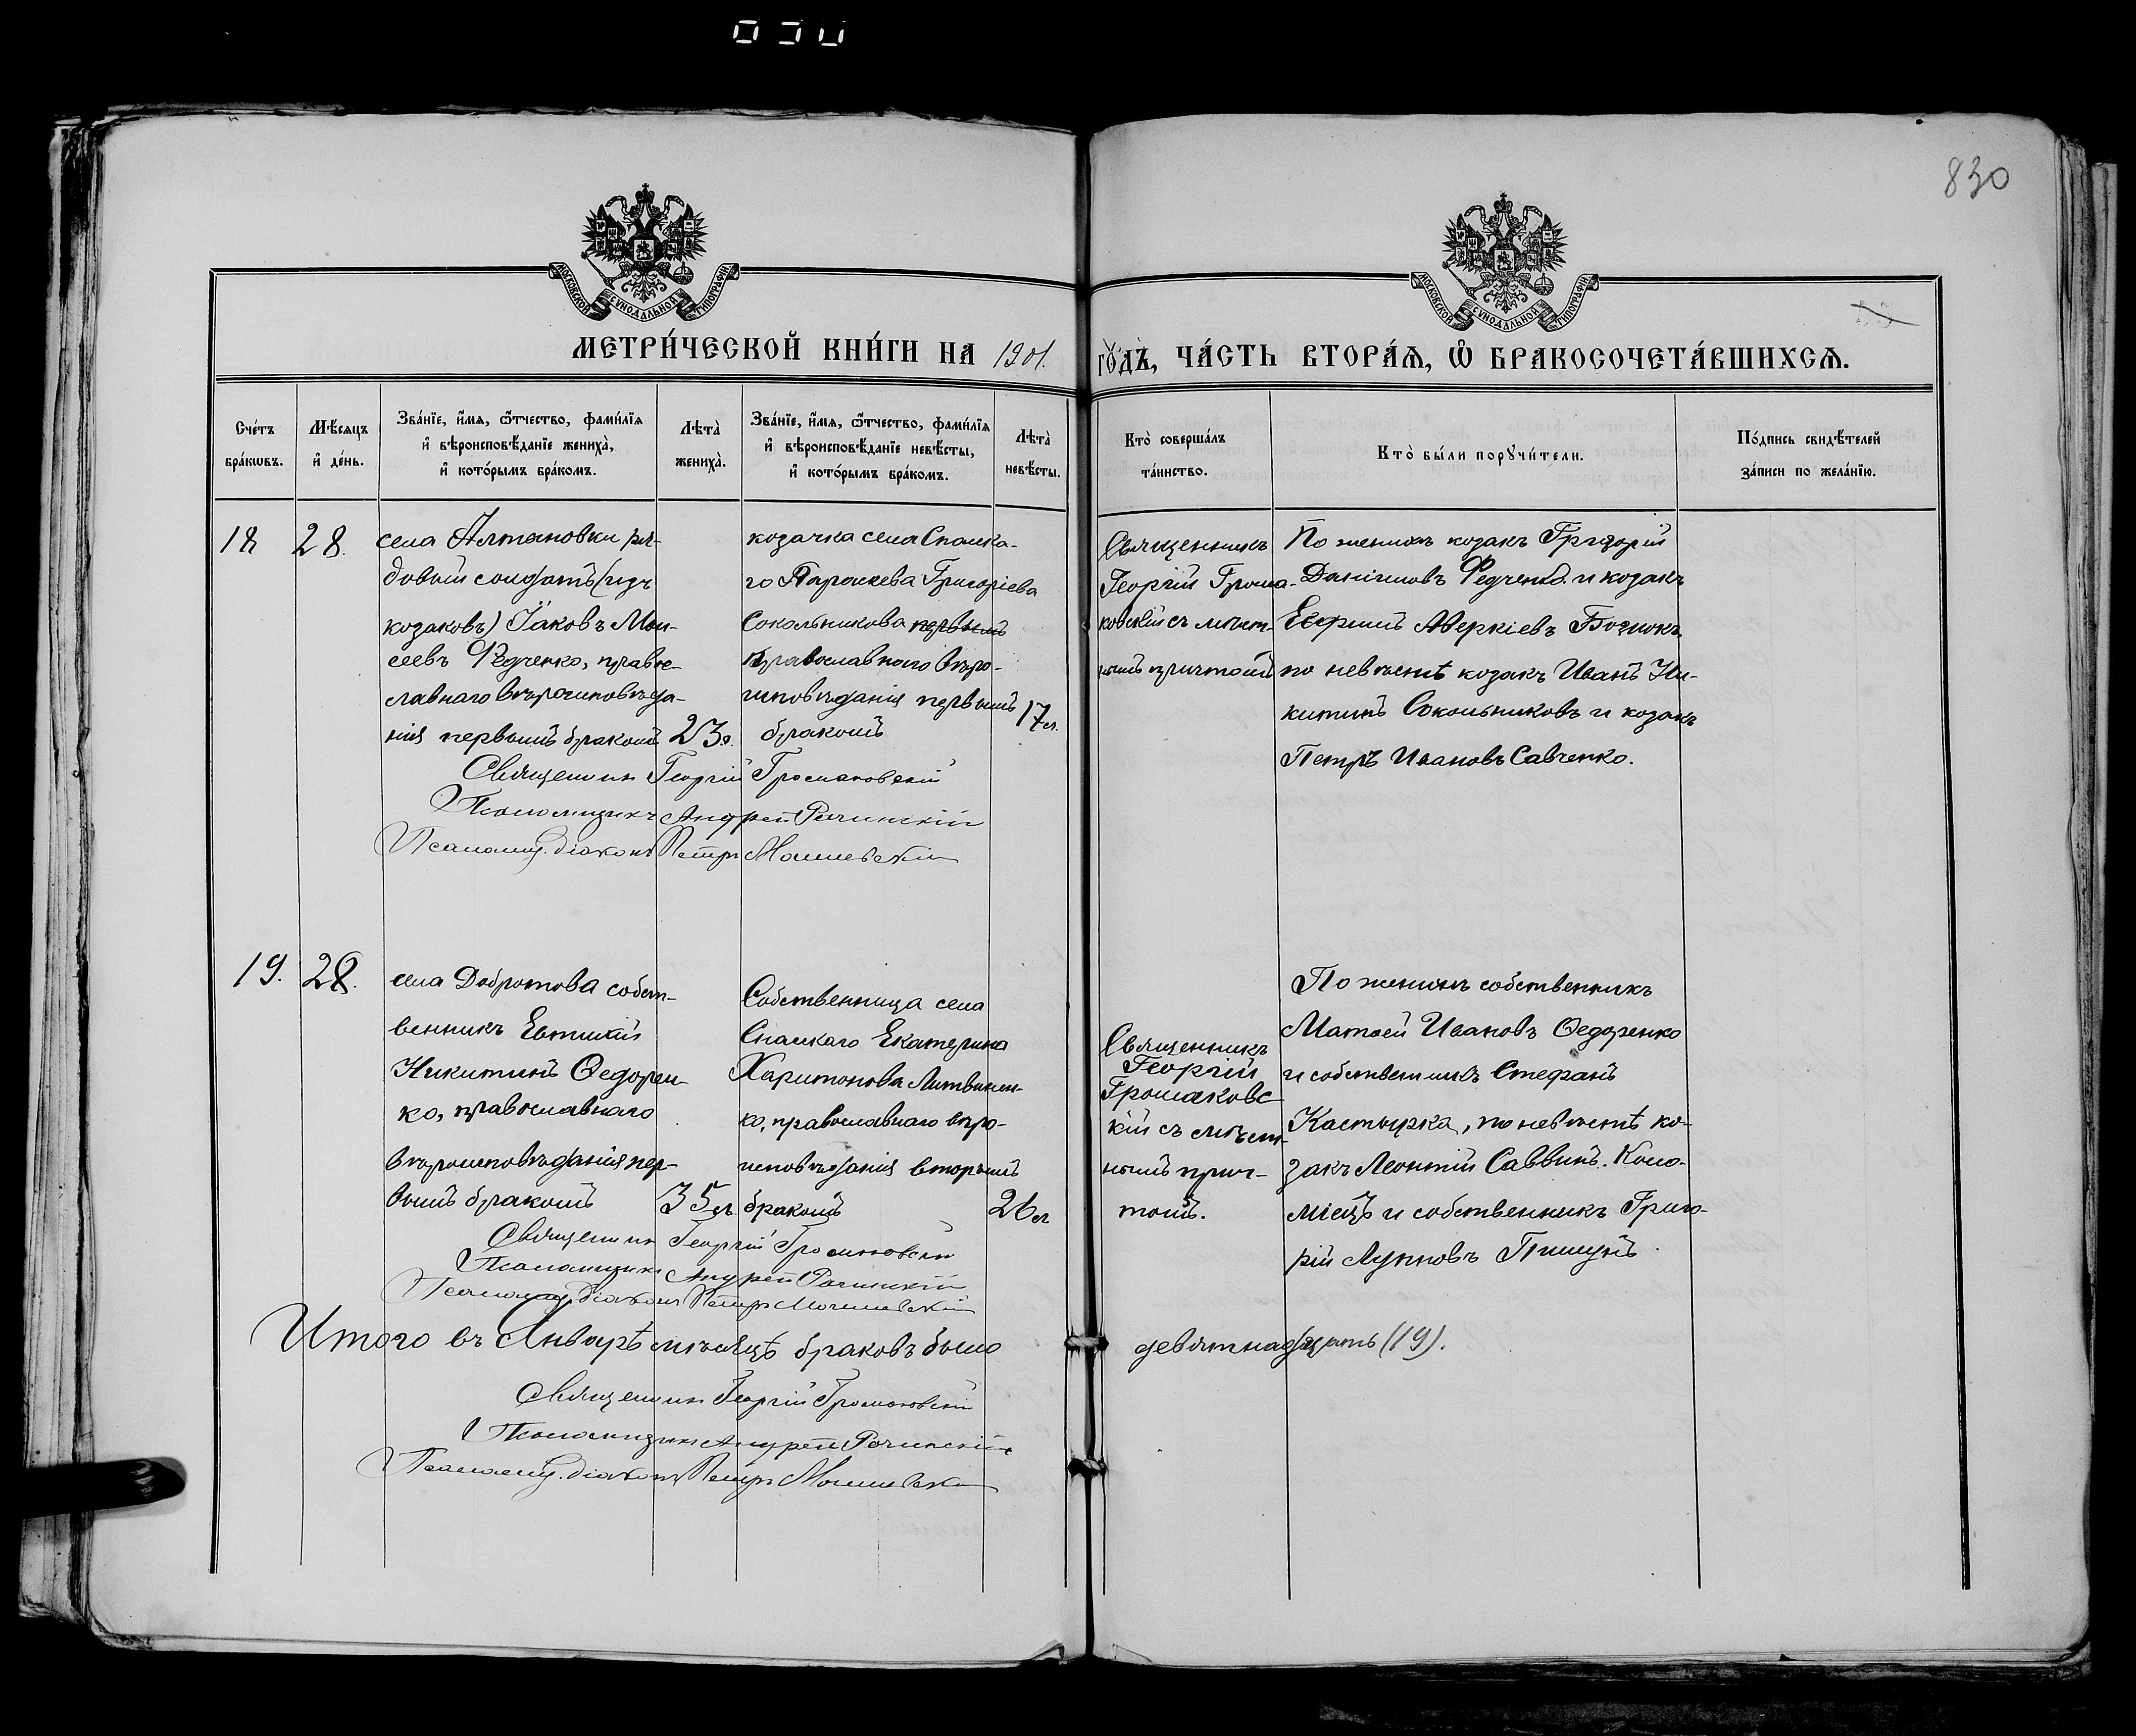 830
МЕТРИ́ЧЕСКОЙ КНИ́ГИ НА 1901. ГО́ДЪ, ЧА́СТЬ ВТОРА́Ѧ, Ѡ҆ БРАКОСОЧЕТА́ВШИХСѦ.
Сче́тъ бра́кωвъ.
Мѣ́сяцъ и҆ де́нь.
Зва́нїе, и҆́мя, ѻ҆́тчество, фами́лїя
и҆ вѣроисповѣ́данїе жениха̀,
и҆ кото́рымъ бра́комъ.
Лѣта̀ жениха̀.
Зва́нїе, и҆́мя, ѻ҆́тчество, фами́лїя
и҆ вѣроисповѣ́данїе невѣ́сты,
и҆ кото́рымъ бра́комъ.
Лѣта̀ невѣ́сты.
Кто̀ соверша́лъ
та́инство.
Кто̀ бы́ли порꙋчи́тели.
По́дпись свидѣ́телей
за́писи по жела́нїю.
18
28.
села Алтановки ря-
довый солдатъ (изъ
козаковъ) Іаковъ Мои-
сеевъ Федченко, право-
славнаго вѣроисповѣда-
нія первымъ бракомъ
23л.
козачка села Спаска-
го Параскева Григоріева
Сокольникова первымъ
православнаго вѣро-
исповѣданія первымъ
бракомъ
17л.
Священникъ
Георгій Грома-
ковскій съ мѣст-
нымъ причтомъ
По женихѣ козакъ Григорій
Даніиловъ Федченко и козакъ
Ефимъ Аверкіевъ
по невѣстѣ козакъ Иванъ Ни-
китинъ Сокольниковъ и козакъ
Петръ Ивановъ Савченко.
Священник Георгій Громаковскій
Псаломщикъ Андрей Рачинскій
Псаломщ. діаконъ Петръ
19.
28.
села Добротова собст-
венникъ Евтихій
Никитинъ Ѳедорен-
ко, православнаго
вѣроисповѣданія пер-
вымъ бракомъ
35л
Собственница села
Спаскаго Екатерина
Харитонова Литвинен-
ко, православнаго вѣро-
исповѣданія вторымъ
бракомъ
26л
Священникъ
Георгій
Громаковс-
кій съ мѣст-
нымъ прич-
томъ.
По женихѣ собственникъ
Матѳей Ивановъ Ѳедоренко
и собственникъ Стефанъ
Кастырка, по невѣстѣ ко-
закъ Леонтій Саввинъ Коло-
міецъ и собственникъ Григо-
рій Лукновъ
Священник Георгій Громаковскій
Псаломщикъ Андрей Рачинскій
Псаломщ. діаконъ Петръ
Итого въ Январѣ мѣсяцѣ браковъ было девятнадцать (19).
Священник Георгій Громаковскій
Псаломщикъ Андрей Рачинскій
Псаломщ. діаконъ Петръ